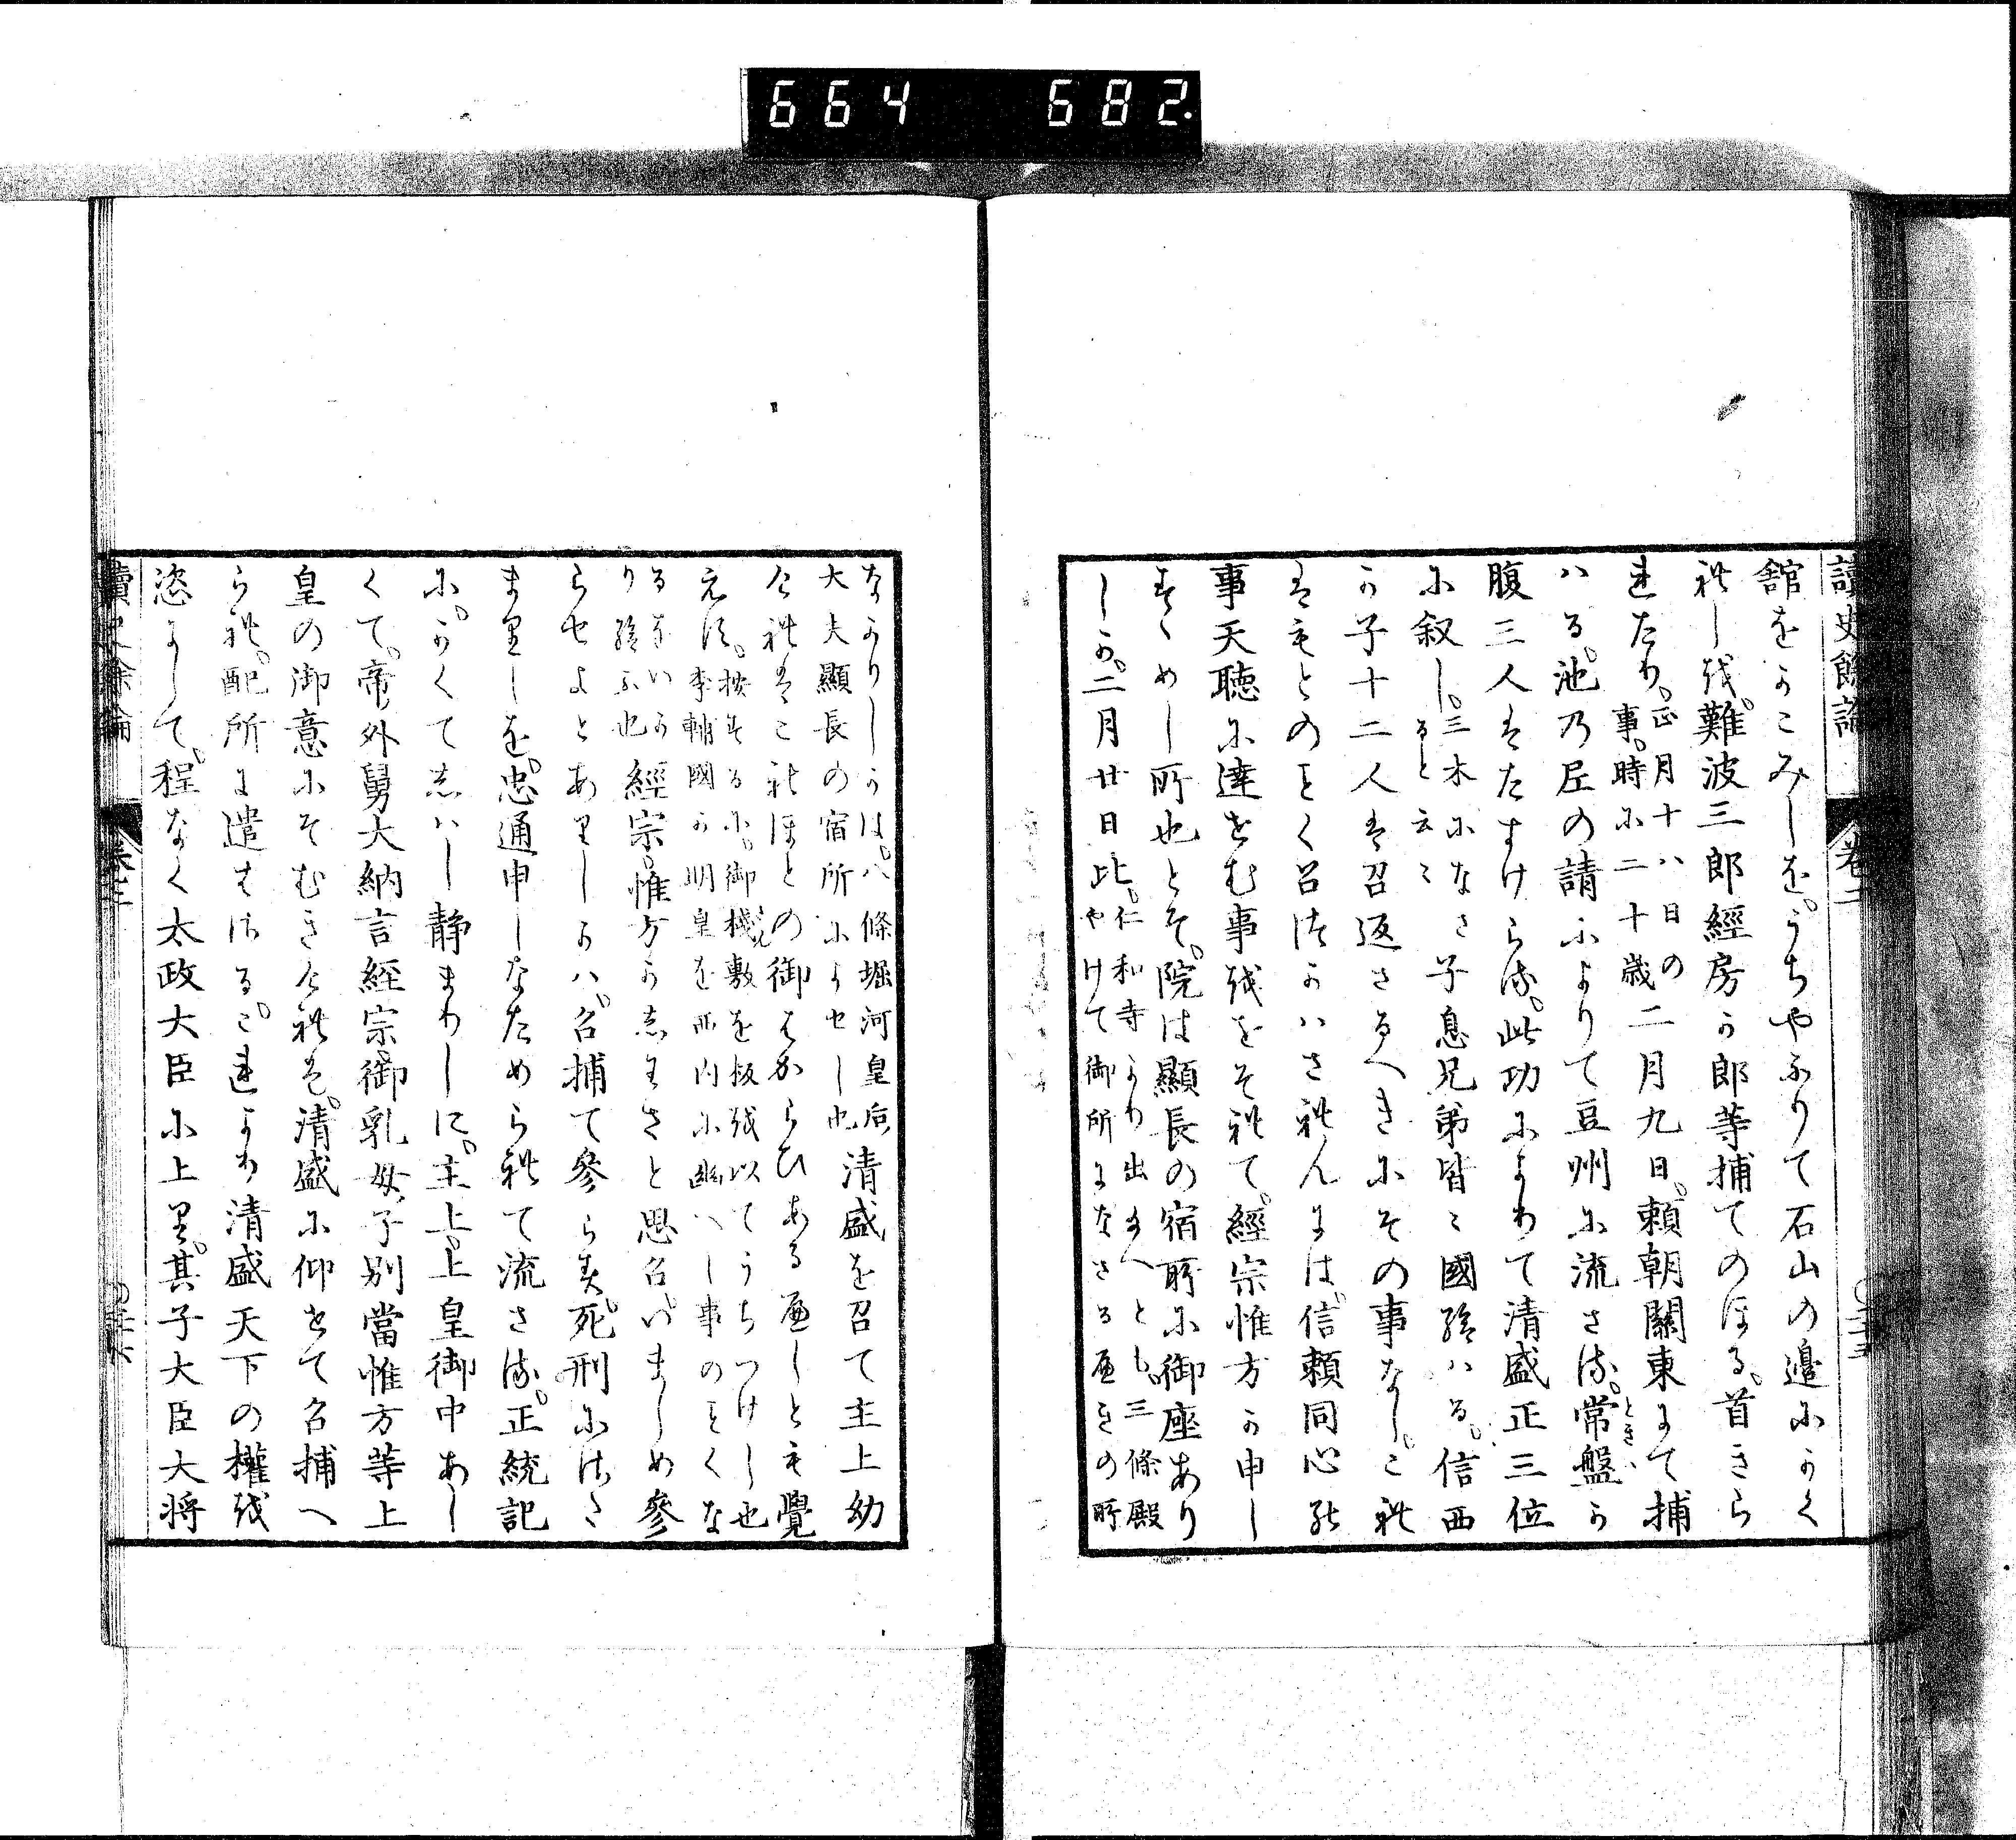 664 682.
讀史餘論 卷二
館をかこみしを。うちやふりて石山の邊にかく
れしを。難波三郎經房か郎等捕てのほる。首きら
れたり。正月十八日の
事。時に二十歳
二月九日。頼朝關東にて捕
ハる。池乃尼の請によりて豆州に流さる。常盤か
ときハ
腹三人はたすけらる。此功によりて清盛正三位
に叙し。三木になさ
ると云〻
子息兄弟皆〻國給ハる。信西
か子十二人は召返さるへきにその事なし。これ
はもとのことく召つかハされんには。信頼同心の
事天聴に達せむ事をおそれて。經宗惟方か申し
すゝめし所也とそ。院は顯長の宿所に御座あり
しか。二月廿日比。仁和寺より出給へとも。三條殿
やけて御所になさるへきの所
なかりしかは。八條堀河皇后
大夫顯長の宿所によせし也
清盛を召て主上幼
くれはこれほとの御はからひあるへしとも覺
えす。按するに。御棧敷を板を以てうちつけし也
李輔國か明皇を西内に幽へし事のことくな
るをいか
り給ふ也
經宗。惟方かしわさと思召。いましめ參
らせよとありしかハ。召捕て參らす。死刑にけさ
まりしを。忠通申しなためられて流さる。正統記
に。かくてしハし静まりしに。主上。上皇御中あし
くて。帝外舅大納言経宗。御乳母子別當惟方等上
皇の御意にそむきけれは。清盛に仰せて召捕へ
られ。配所に遣はさる。これより清盛天下の權を
恣にして。程なく太政大臣に上り。其子大臣大将
讀史餘論 卷二